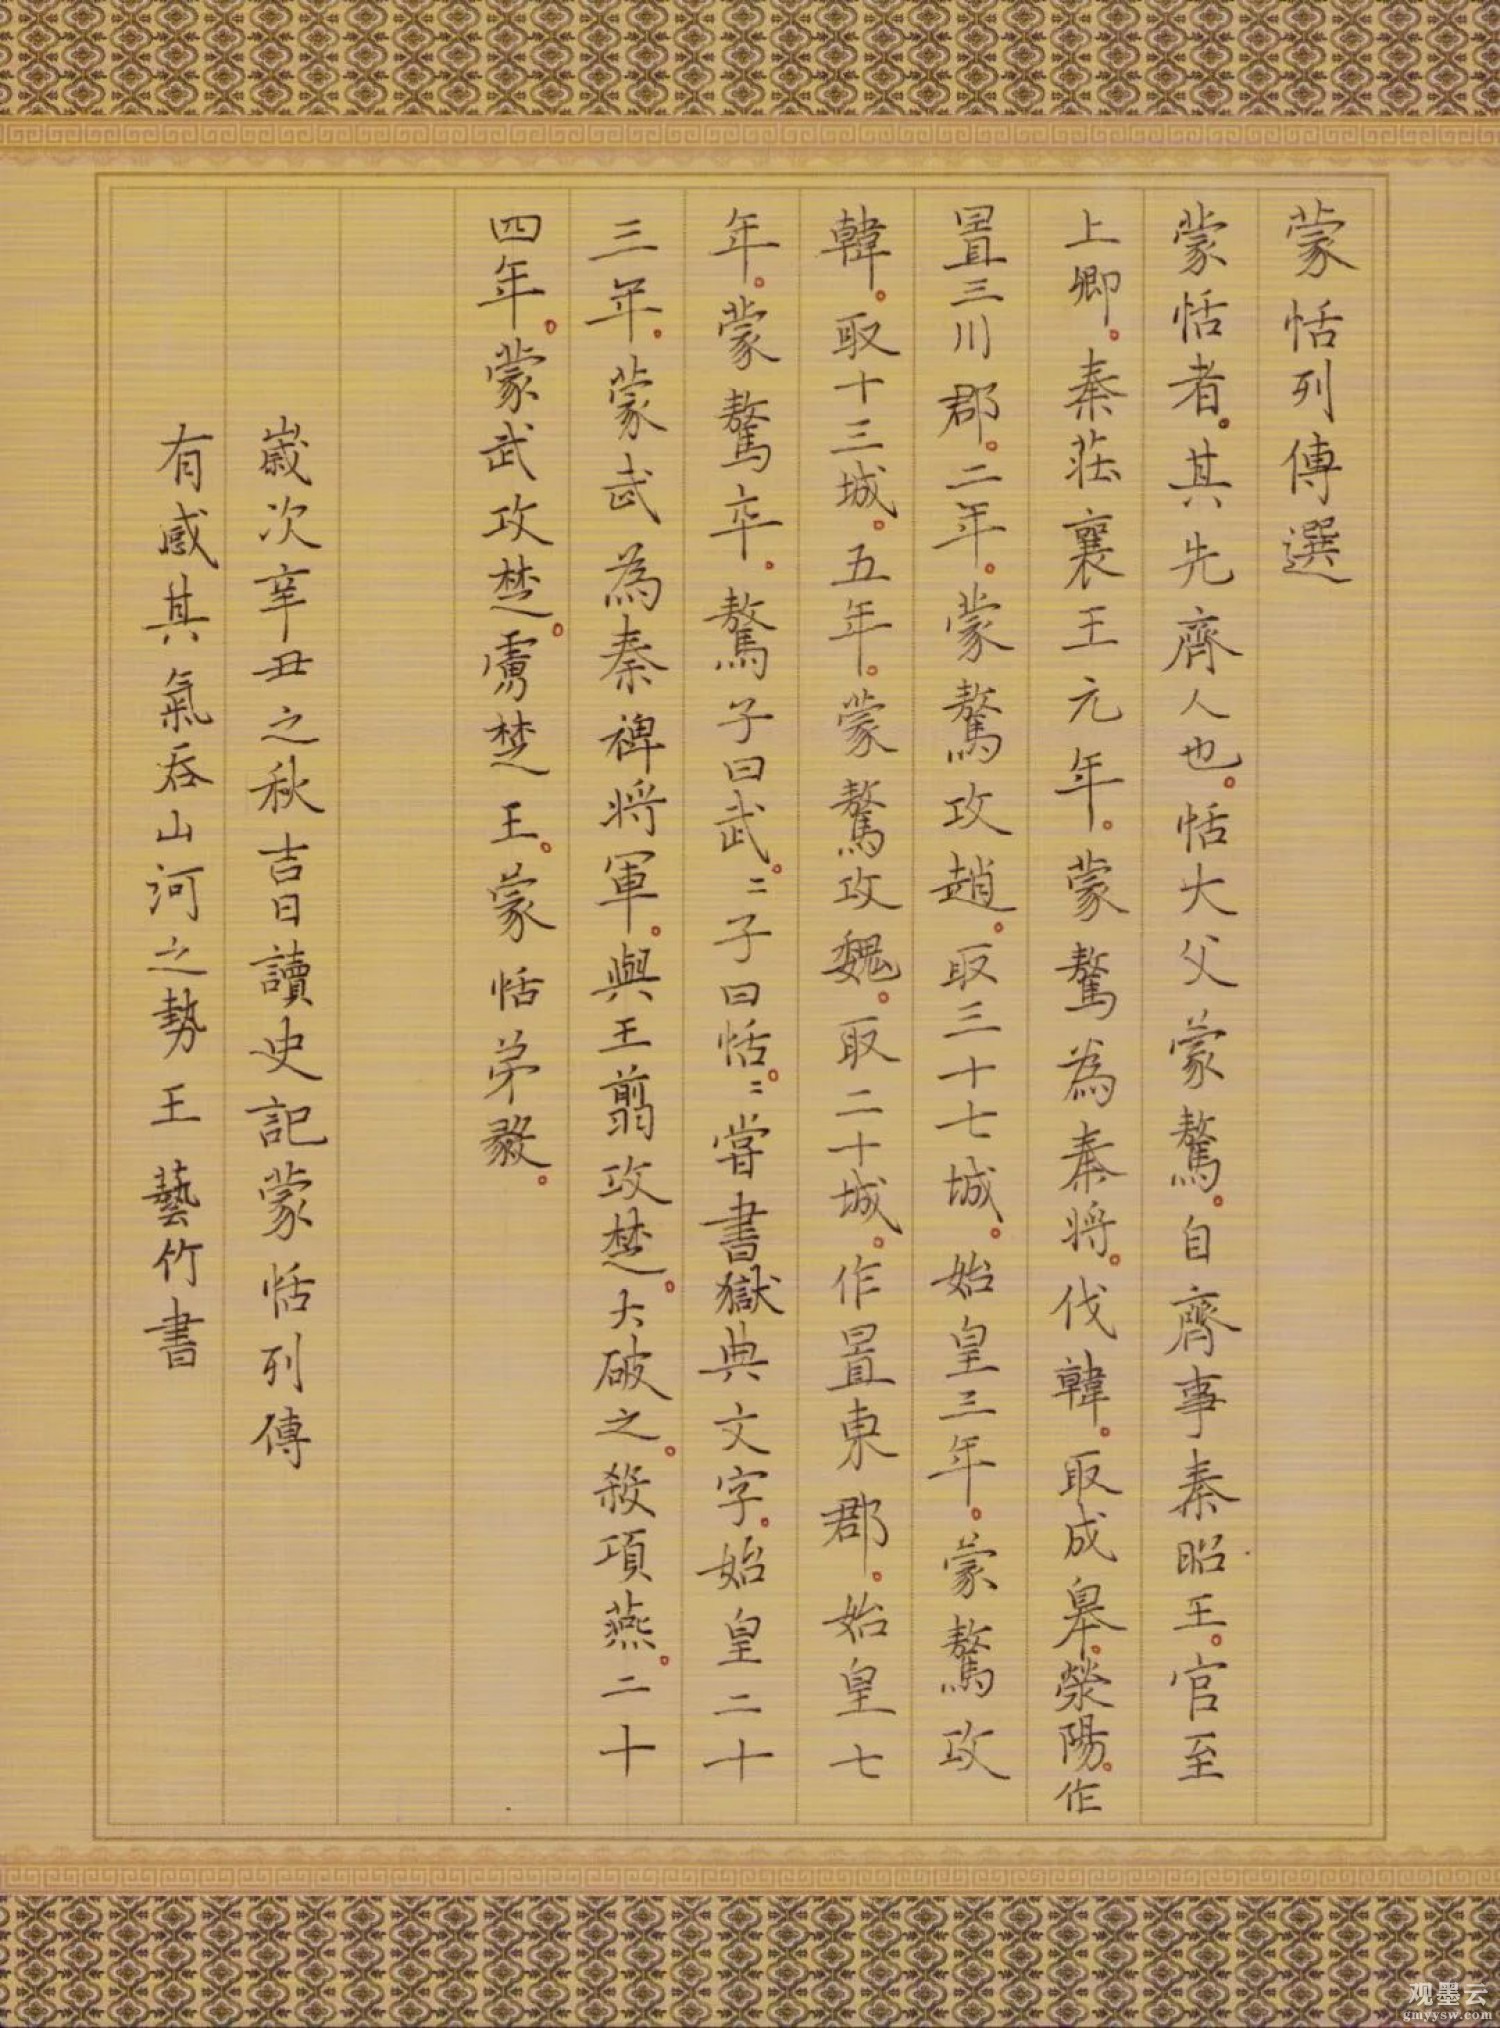 蒙恬列傳選
蒙恬者。其先齊人也。恬大父蒙驁。自齊事秦昭王。官至
上卿。秦莊襄王元年。蒙驁為秦將。伐韓。取成皋。滎陽。作
置三川郡。二年。蒙驁攻趙。取三十七城。始皇三年。蒙驁攻
韓。取十三城。五年。蒙驁攻魏。取二十城。作置東郡。始皇七
年。蒙驁卒。驁子曰武。〻子曰恬。〻嘗書獄典文字。始皇二十
三年。蒙武為秦裨將軍。與王翦攻楚。大破之。殺項燕。二十
四年。蒙武攻楚。虜楚王。蒙恬弟毅。
歲次辛丑之秋吉日讀史記蒙恬列傳
有感其氣吞山河之勢王藝竹書
观墨云
gmyysw.com